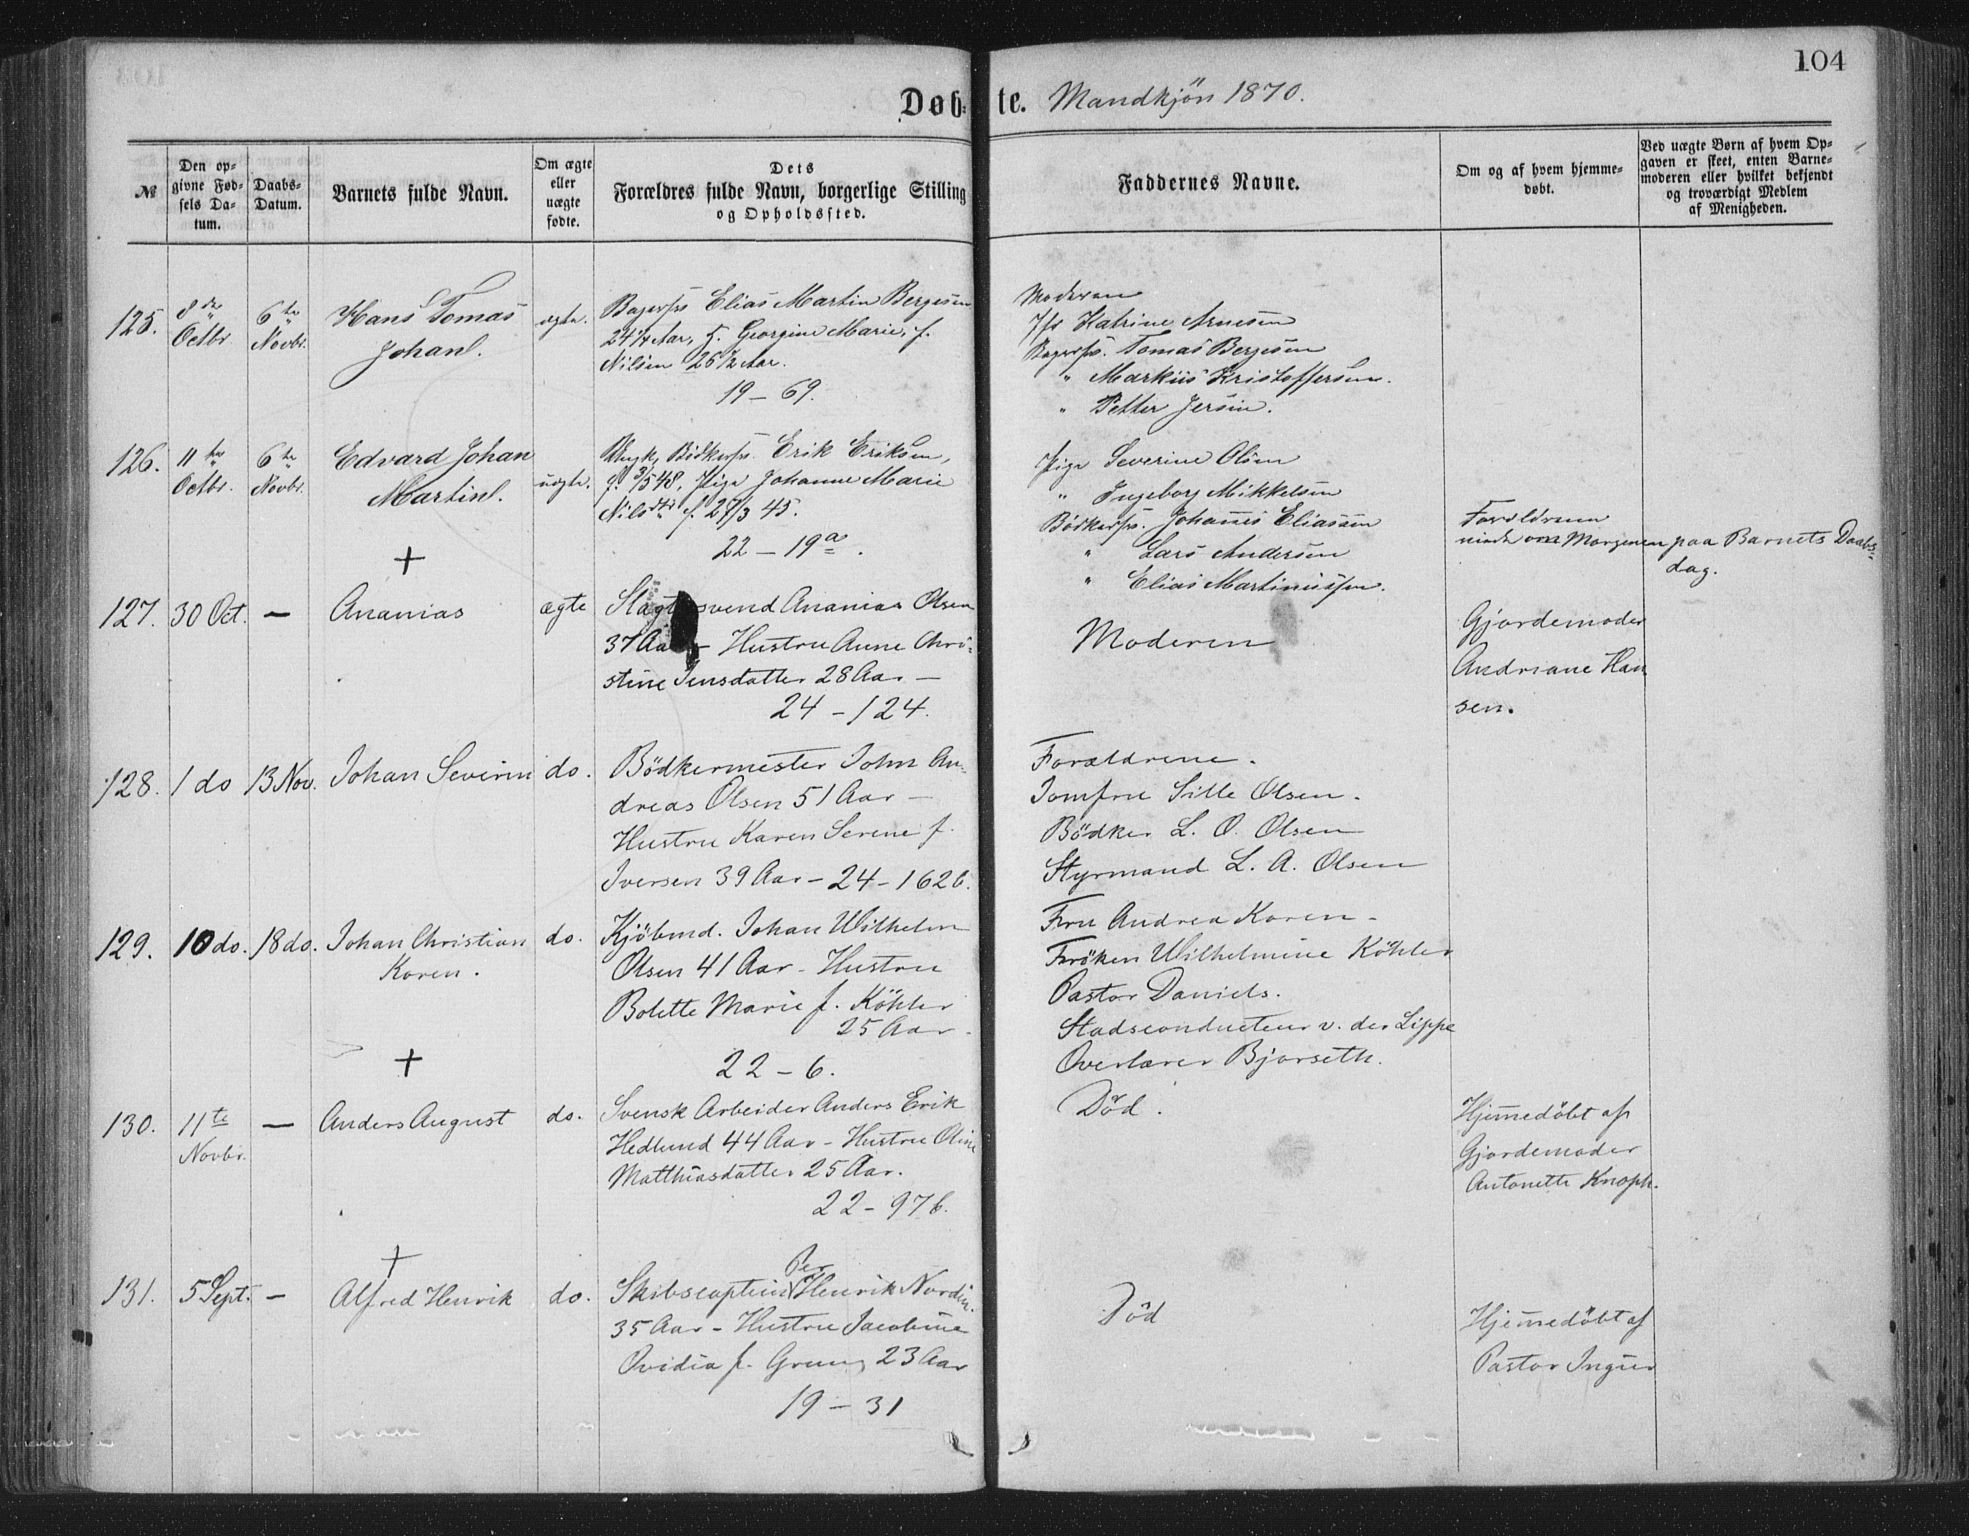 104
Døb-te. Mandkjön 1870.
№
Den op-
givne Fød-
sels Da-
tum.
Daabs-
Datum.
Barnets fulde Navn.
Om ægte
eller
uægte
fødte.
Dets
Forældres fulde Navn, borgerlige Stilling
og Opholdssted.
Faddernes Navne.
Om og af hvem hjemme-
døbt.
Ved uægte Børn af hvem Op-
gaven er skeet, enten Barne-
moderen eller hvilket bekjendt
og troværdigt Medlem
af Menigheden.
125.
8de
Octbr
6te
Novbr.
Hans Tomas
Johan
ægte.
Elias Martin Bergesen
24 1/4 Aar, H. Georgine Marie, f.
Nilsen 26 1/2 Aar.
19 – 69.
Moderen
Jfr Katrine Arnesen
Tomas Bergesen
" Markus Kristoffersen.
" Petter Jersin.
126.
11te
Octbr.
6te
Novbr.
Edvard Johan
Martin
uægte.
Ungk, Bödkersv. Erik Eriksen,
f. 3/5 48, Pige Johanne Marie
Nilsdtr f. 27/3 45.
22 – 19a.
Pige Severine Olsen
" Ingeborg Mikkelsen
Bödkersv. Johannes Eliassen
" Lars Andersen
" Elias Martinussen.
Forældrene
viede om Morgenen paa Barnets Daabs-
dag.
+
127.
30 Oct.
—
Ananias
ægte
Slagtersvend Ananias Olsen
37 Aar – Hustru Anne Chri-
stine Jensdatter 28 Aar —
24 – 124.
Moderen
Gjordemoder
Andriane Han
sen.
128.
1 do
13 Nov.
Johan Severin
do.
Bödkermester John An-
dreas Olsen 51 Aar —
Hustru Karen Serene f.
Iversen 39 Aar – 24 – 162b.
Forældrene.
Jomfru Sille Olsen.
Bödker L. O. Olsen
Styrmand L. A. Olsen
129.
10 do.
18 do.
Johan Christian
Koren.
do.
Kjöbmd. Johan Wilhelm
Olsen 41 Aar – Hustru
Bolette Marie f. Köhler
25 Aar –
22 – 6.
Fru Andrea Koren –
Fröken Wilhelmine Köhler
Pastor Daniels.
Stadsconducteur v. der Lippe
Overlærer Bjorseth.
+
130.
11te
Novbr.
—
Anders August
do.
Svensk Arbeider Anders Erik
Hedlund 44 Aar – Hustru Oline
Matthiasdatter 25 Aar.
22 – 97b.
Död.
Hjemmedöbt af
Gjordemoder
Antonette Knoph.
+
131.
5 Sept.
—
Alfred Henrik
do.
Per
Skibscaptein Henrik Nordin.
35 Aar – Hustru Jacobine
Ovidia f. Grung 23 Aar
19 – 31
Död
Hjemmedöbt af
Pastor Ingier